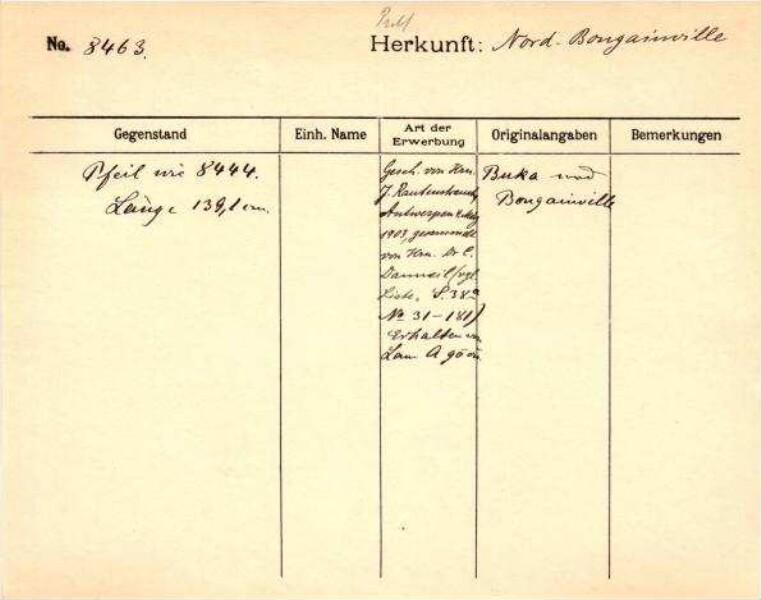 No. 8463. Herkunft: Nord-Bougainville
Gegenstand Einh. Name Art der Erwerbung Originalangaben Bemerkungen
Pfeil wie 8444.
Länge 139,1 cm.
Gesch. von Hrn.
J. Rautenstrauch,
Antwerpen
1903, gesammelt
von Hrn. Dr C.
Danneil (vgl.
Liste, S. 38a
No 31-181)
Erhalten von
Lam
Buka und
Bougainville